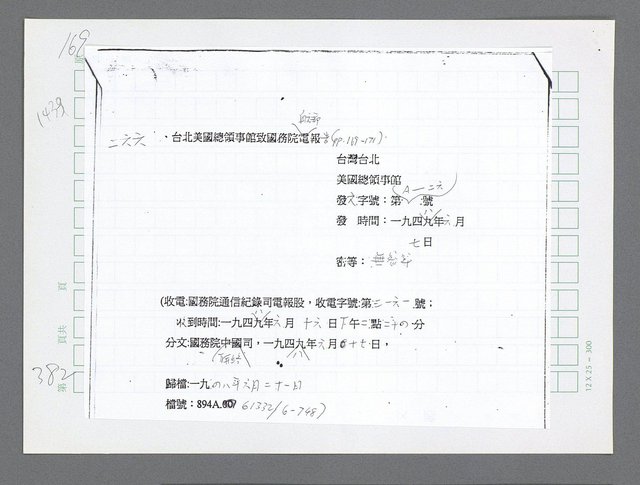 169
1439
二六六、台北美國總領事館致國務院電報(pp.169-171)
台灣台北
美國總領事館
A—二六
發文字號：第 號
發 時間：一九四九年六月
七日
密等：
(收電:國務院通信紀錄司電報股，收電字號:第三一六一號；
收到時間:一九四九年六月 十六日下午二點二十四分
分文:國務院中國司，一九四九年六月十七日，
歸檔:一九四八年六月二十一日
檔號：894A.00/ 61332/6-748)
頁
頁共
382
第
12 X 25 = 300